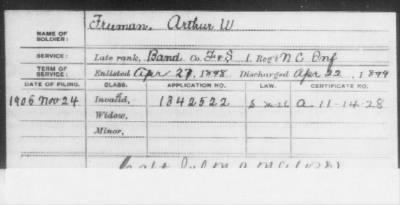 Freeman, Arthur W
NAME OF SOLDIER:
SERVICE: Late rank, Band Co. F & S 1 Reg't N C Inf
TERM OF SERVICE: Enlisted Apr 27, 1898 Discharged Apr 22, 1899
DATE OF FILING. CLASS. APPLICATION NO. LAW. CERTIFICATE NO.
1906 Nov 24 Invalid, 1342522 a 11-14-28
Widow,
Minor,